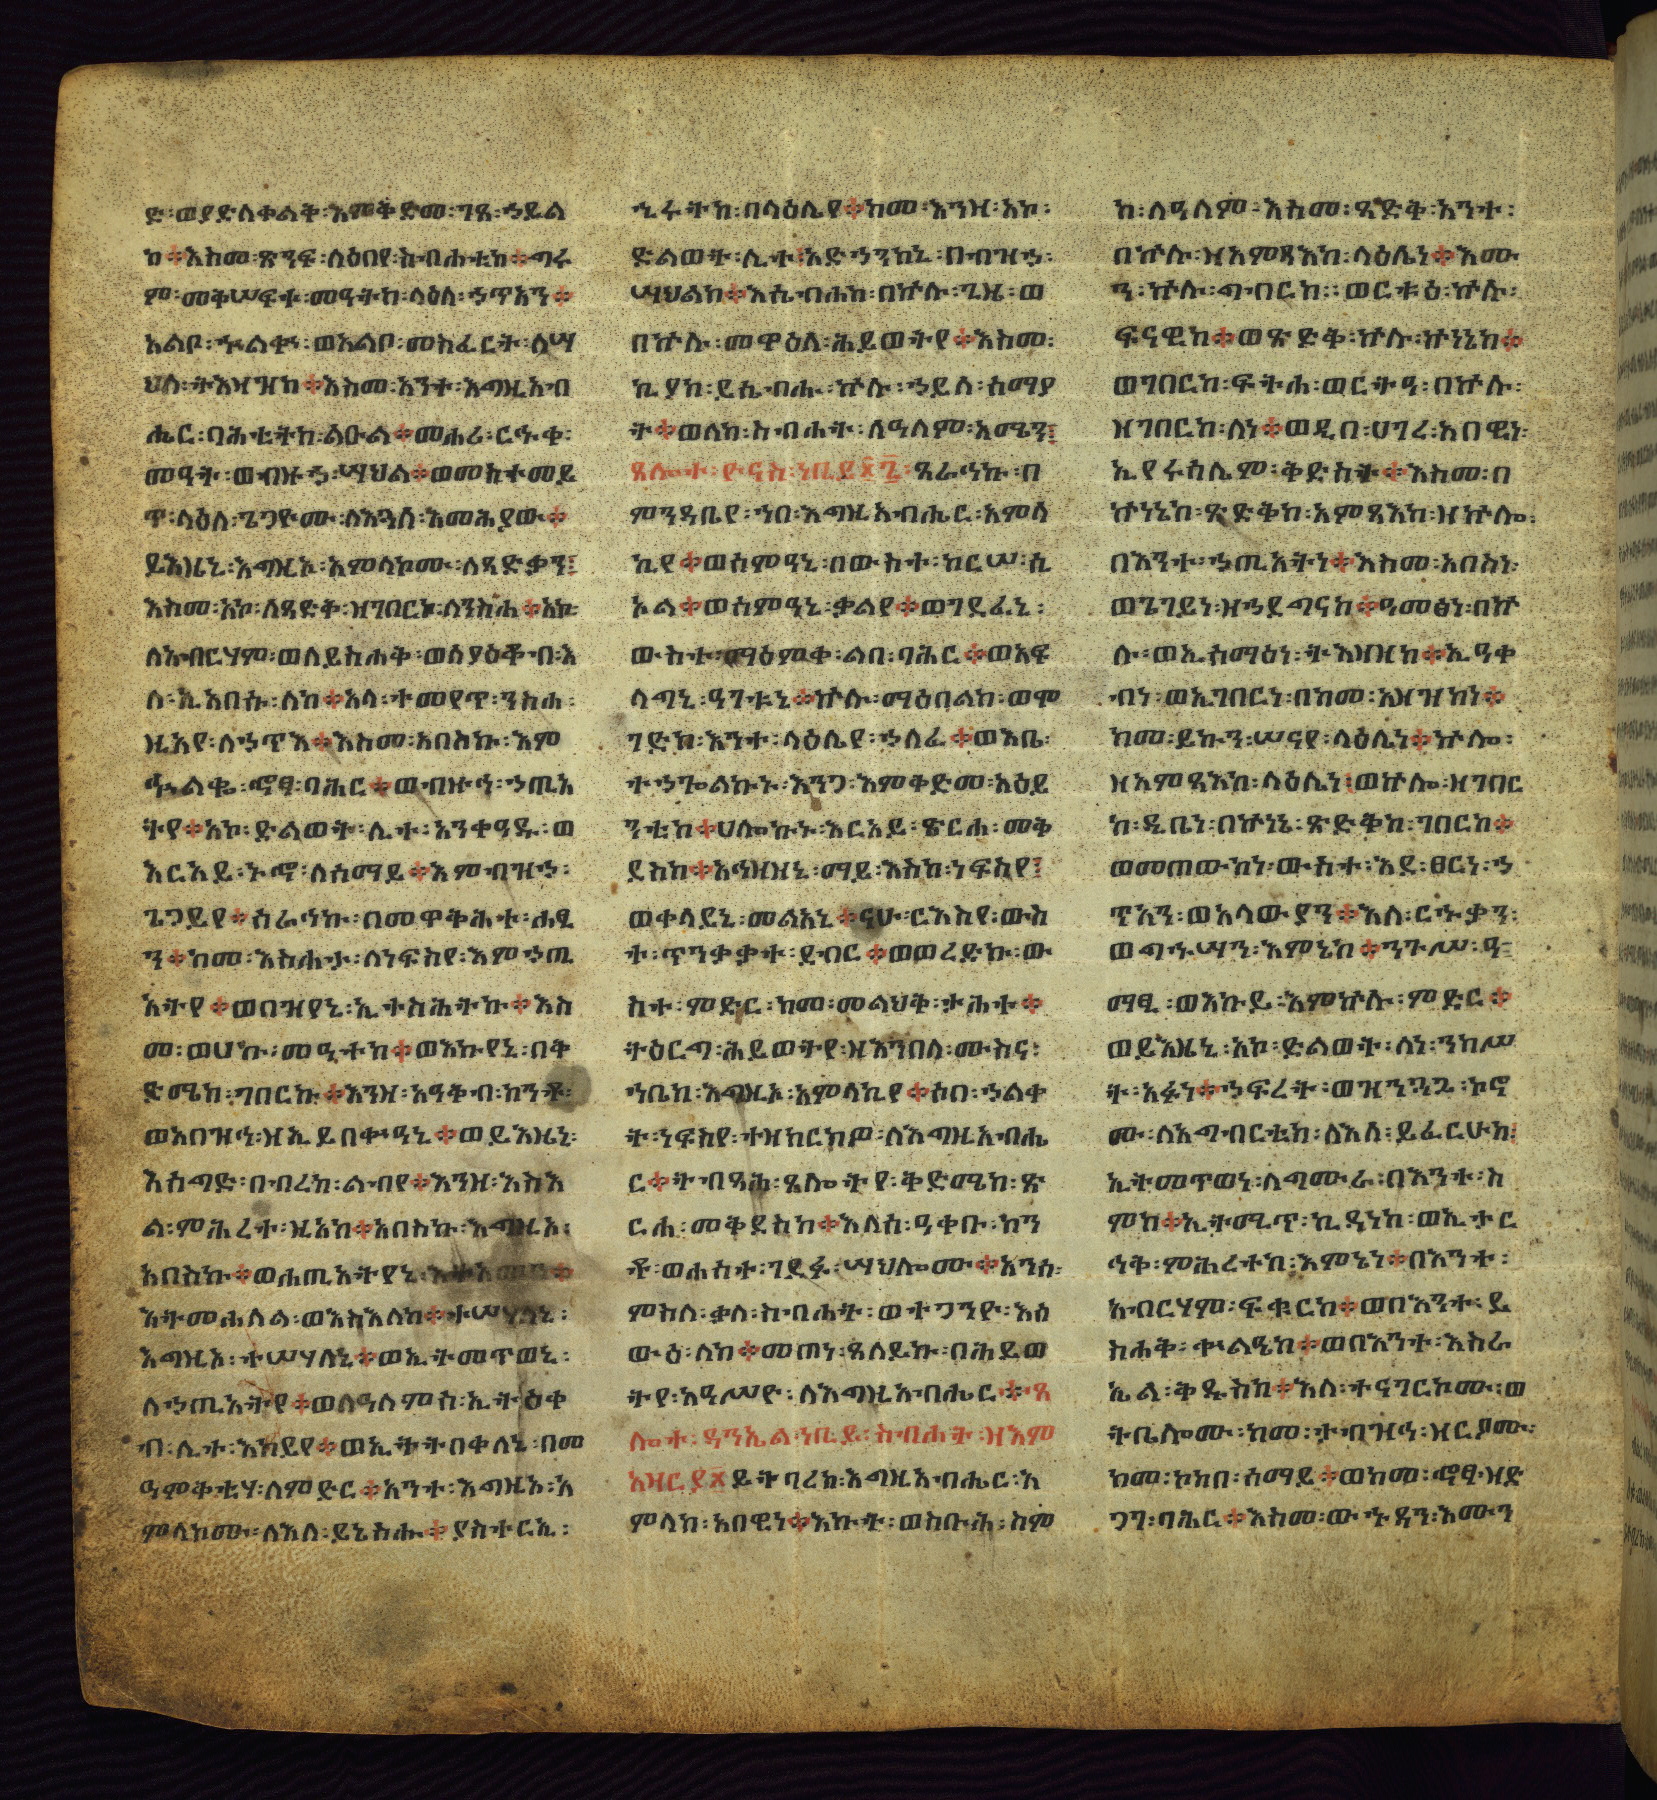 ድ፡ወያድለቀልቅ፡እምቅድመ፡ገጸ፡ኀይል
ከ፨እስመ፡ጽኑፍ፡ዕበየ፡ስብሐቲከ፨ግሩ
ም፡መቅሠፍተ፡መዓትከ፡ላዕለ፡ኃጥአን፨
አልቦ፡ኍልቈ፡ወአልቦ፡መስፈርት፡ለሣ
ህለ፡ትእዛዝከ፨እስመ፡አንተ፡እግዚአብ
ሔር፡ባሕቲትከ፡ልዑል፨መሐሪ፡ርኁቀ፡
መዓት፡ወብዙኃ፡ሣህል፨ወመስተመይ
ጥ፡ላዕለ፡ጌጋዮሙ፡ለእጓለ፡እመሕያው፨
ይእዜኒ፡እግዚኦ፡አምላኮሙ፡ለጻድቃን፤
እስመ፡አኮ፡ለጻድቅ፡ዘገበርከ፡ለንስሐ፨አኮ፡
ለአብርሃም፡ወለይስሐቅ፡ወለያዕቆብ፡እ
ለ፡ኢአበሱ፡ለከ፨አላ፡ተመየጥ፡ንስሐ፡
ዚአየ፡ለኃጥእ፨እስመ፡አበስኩ፡እም
ኍልቈ፡ኆፃ፡ባሕር፨ወብዙኀ፡ኃጢአ
ትየ፨አኮ፡ድልወት፡ሊተ፡አንቀዓዱ፡ወ
እርአይ፡ኑኆ፡ለሰማይ፨እምብዝኃ፡
ጌጋይየ፨ሰራኀኩ፡በመዋቅሕተ፡ሐፂ
ን፨ከመ፡እስሐታ፡ለነፍስየ፡እምኃጢ
አትየ፨ወበዝየኒ፡ኢተስሕትኩ፨እስ
መ፡ወሀኩ፡መዒተከ፨ወእኩየኒ፡በቅ
ድሜከ፡ገበርኩ፨እንዘ፡አዓቅብ፡ከንቶ፡
ወአበዝኀ፡ዘኢይበቍዓኒ፨ወይእዜኒ፡
እሰግድ፡በብረከ፡ልብየ፨እንዘ፡እስእ
ል፡ምሕረተ፡ዚአከ፨አበስኩ፡እግዚኦ፡
አበስኩ፨ወሐጢአትየኒ፡አትአመን፨
እትመሐለል፡ወእስእለከ፨ተሣሃለኒ፡
እግዚኦ፡ተሣሃለኒ፨ወኢትመጥወኒ፡
ለኃጢአትየ፨ወለዓለምሰ፡ኢትዕቀ
ብ፡ሊተ፡እከይየ፨ወኢትትበቀለኒ፡በመ
ዓምቅቲሃ፡ለምድር፨አንተ፡እግዚኦ፡አ
ምላኮሙ፡ለእለ፡ይኔስሑ፨ያስተርኢ፡
ኂሩትከ፡በላዕሌየ፨ከመ፡እንዘ፡አኮ፡
ድልወት፡ሊተ፡አድኀንከኒ፡በብዝኃ፡
ሣህልከ፨እሴብሐከ፡በኵሉ፡ጊዜ፡ወ
በኵሉ፡መዋዕለ፡ሕይወትየ፨እስመ፡
ኪያከ፡ይሴብሑ፡ኵሉ፡ኀይለ፡ሰማያ
ት፨ወለከ፡ስብሐት፡ለዓለም፡አሜን፤
ጸሎተ፡ዮናስ፡ነቢይ፡ ጸራኅኩ፡በ
ምንዳቤየ፡ኀበ፡እግዚአብሔር፡አምላ
ኪየ፨ወሰምዓኒ፡በውስተ፡ከርሠ፡ሲ
ኦል፨ወሰምዓኒ፡ቃልየ፨ወገደፈኒ፡
ውስተ፡ማዕምቀ፡ልበ፡ባሕር፨ወአፍ
ላግኒ፡ዓገቱኒ፨ኵሉ፡ማዕበልከ፡ወሞ
ገድከ፡እንተ፡ላዕሌየ፡ኃለፈ፨ወእቤ፡
ተኃጐልኩኑ፡እንጋ፡እምቅድመ፡አዕይ
ንቲከ፨ሀሎኩኑ፡እርአይ፡ጽርሐ፡መቅ
ደስከ፨አኀዘዘኒ፡ማይ፡እስከ፡ነፍስየ፤
ወቀላይኒ፡መልአኒ፨ናሁ፡ርእስየ፡ውስ
ተ፡ጥንቃቃተ፡ደብር፨ወወረድኩ፡ው
ስተ፡ምድር፡ከመ፡መልህቅ፡ታሕተ፨
ትዕርግ፡ሕይወትየ፡ዘእንበለ፡ሙስና፡
ኀቤከ፡እግዚኦ፡አምላኪየ፨ሶበ፡ኃልቀ
ት፡ነፍስየ፡ተዘከርክዎ፡ለእግዚአብሔ
ር፨ትብጻሕ፡ጸሎትየ፡ቅድሜከ፡ጽ
ርሐ፡መቅደስከ፨እለሰ፡ዓቀቡ፡ከን
ቶ፡ወሐሰተ፡ገደፉ፡ሣህሎሙ፨አንሰ፡
ምስለ፡ቃለ፡ስብሐት፡ወተጋንዮ፡እሰ
ውዕ፡ለከ፨መጠነ፡ጸለይኩ፡በሕይወ
ትየ፡አዓሥዮ፡ለእግዚአብሔር፨ጸ
ሎተ፡ዳንኤል፡ነቢይ፡ስብሐት፡ዘእም
አዛርያ ይትባረክ፡እግዚአብሔር፡አ
ምላከ፡አበዊነ፨እኩት፡ወስቡሕ፡ስም
ከ፡ለዓለም፡እስመ፡ጻድቅ፡አንተ፡
በኵሉ፡ዘአምጻእከ፡ላዕሌነ፨እሙ
ን፡ኵሉ፡ግብርከ፡ወርቱዕ፡ኵሉ፡
ፍናዊከ፨ወጽድቅ፡ኵሉ፡ኵነኔከ፨
ወገበርከ፡ፍትሐ፡ወርትዓ፡በኵሉ፡
ዘገበርከ፡ለነ፨ወዲበ፡ሀገረ፡አበዊነ፡
ኢየሩሳሌም፡ቅድስት፨እስመ፡በ
ኵነኔከ፡ጽድቅከ፡አምጻእከ፡ዘኵሎ፡
በእንተ፡ኃጢአትነ፨እስመ፡አበስነ፡
ወጌገይነ፡ዘኃደግናከ፨ዓመፅነ፡በኵ
ሉ፡ወኢሰማዕነ፡ትእዛዘከ፨ኢዓቀ
ብነ፡ወኢገበርነ፡በከመ፡አዘዝከነ፨
ከመ፡ይኩን፡ሠናየ፡ላዕሌነ፨ኵሎ፡
ዘአምጻእከ፡ላዕሌነ፡ወኵሎ፡ዘገበር
ከ፡ዲቤነ፡በኵነኔ፡ጽድቅከ፡ገበርከ፨
ወመጠውከነ፡ውስተ፡እደ፡ፀርነ፡ኃ
ጥአን፡ወአላውያን፨እለ፡ርኁቃን፡
ወግኁሣን፡እምኔከ፨ንጉሥ፡ዓ
ማፂ፡ወእኩይ፡እምኵሉ፡ምድር፨
ወይእዜኒ፡አኮ፡ድልወት፡ለነ፡ንከሥ
ት፡አፉነ፨ኃፍረት፡ወዝንጓጔ፡ኮኖ
ሙ፡ለአግብርቲከ፡ለእለ፡ይፈርሁከ፡
ኢትመጥወነ፡ለግሙራ፡በእንተ፡ስ
ምከ፨ኢትሚጥ፡ኪዳነከ፡ወኢታር
ኅቅ፡ምሕረተከ፡እምኔነ፨በእንተ፡
አብርሃም፡ፍቁርከ፨ወበእንተ፡ይ
ስሐቅ፡ቍልዔከ፨ወበእንተ፡እስራ
ኤል፡ቅዱስከ፨እለ፡ተናገርኮሙ፡ወ
ትቤሎሙ፡ከመ፡ታብዝኀ፡ዘርዖሙ፡
ከመ፡ኮከበ፡ሰማይ፨ወከመ፡ኆፃ፡ዘድ
ንጋገ፡ባሕር፨እስመ፡ውኁዳን፡እሙን